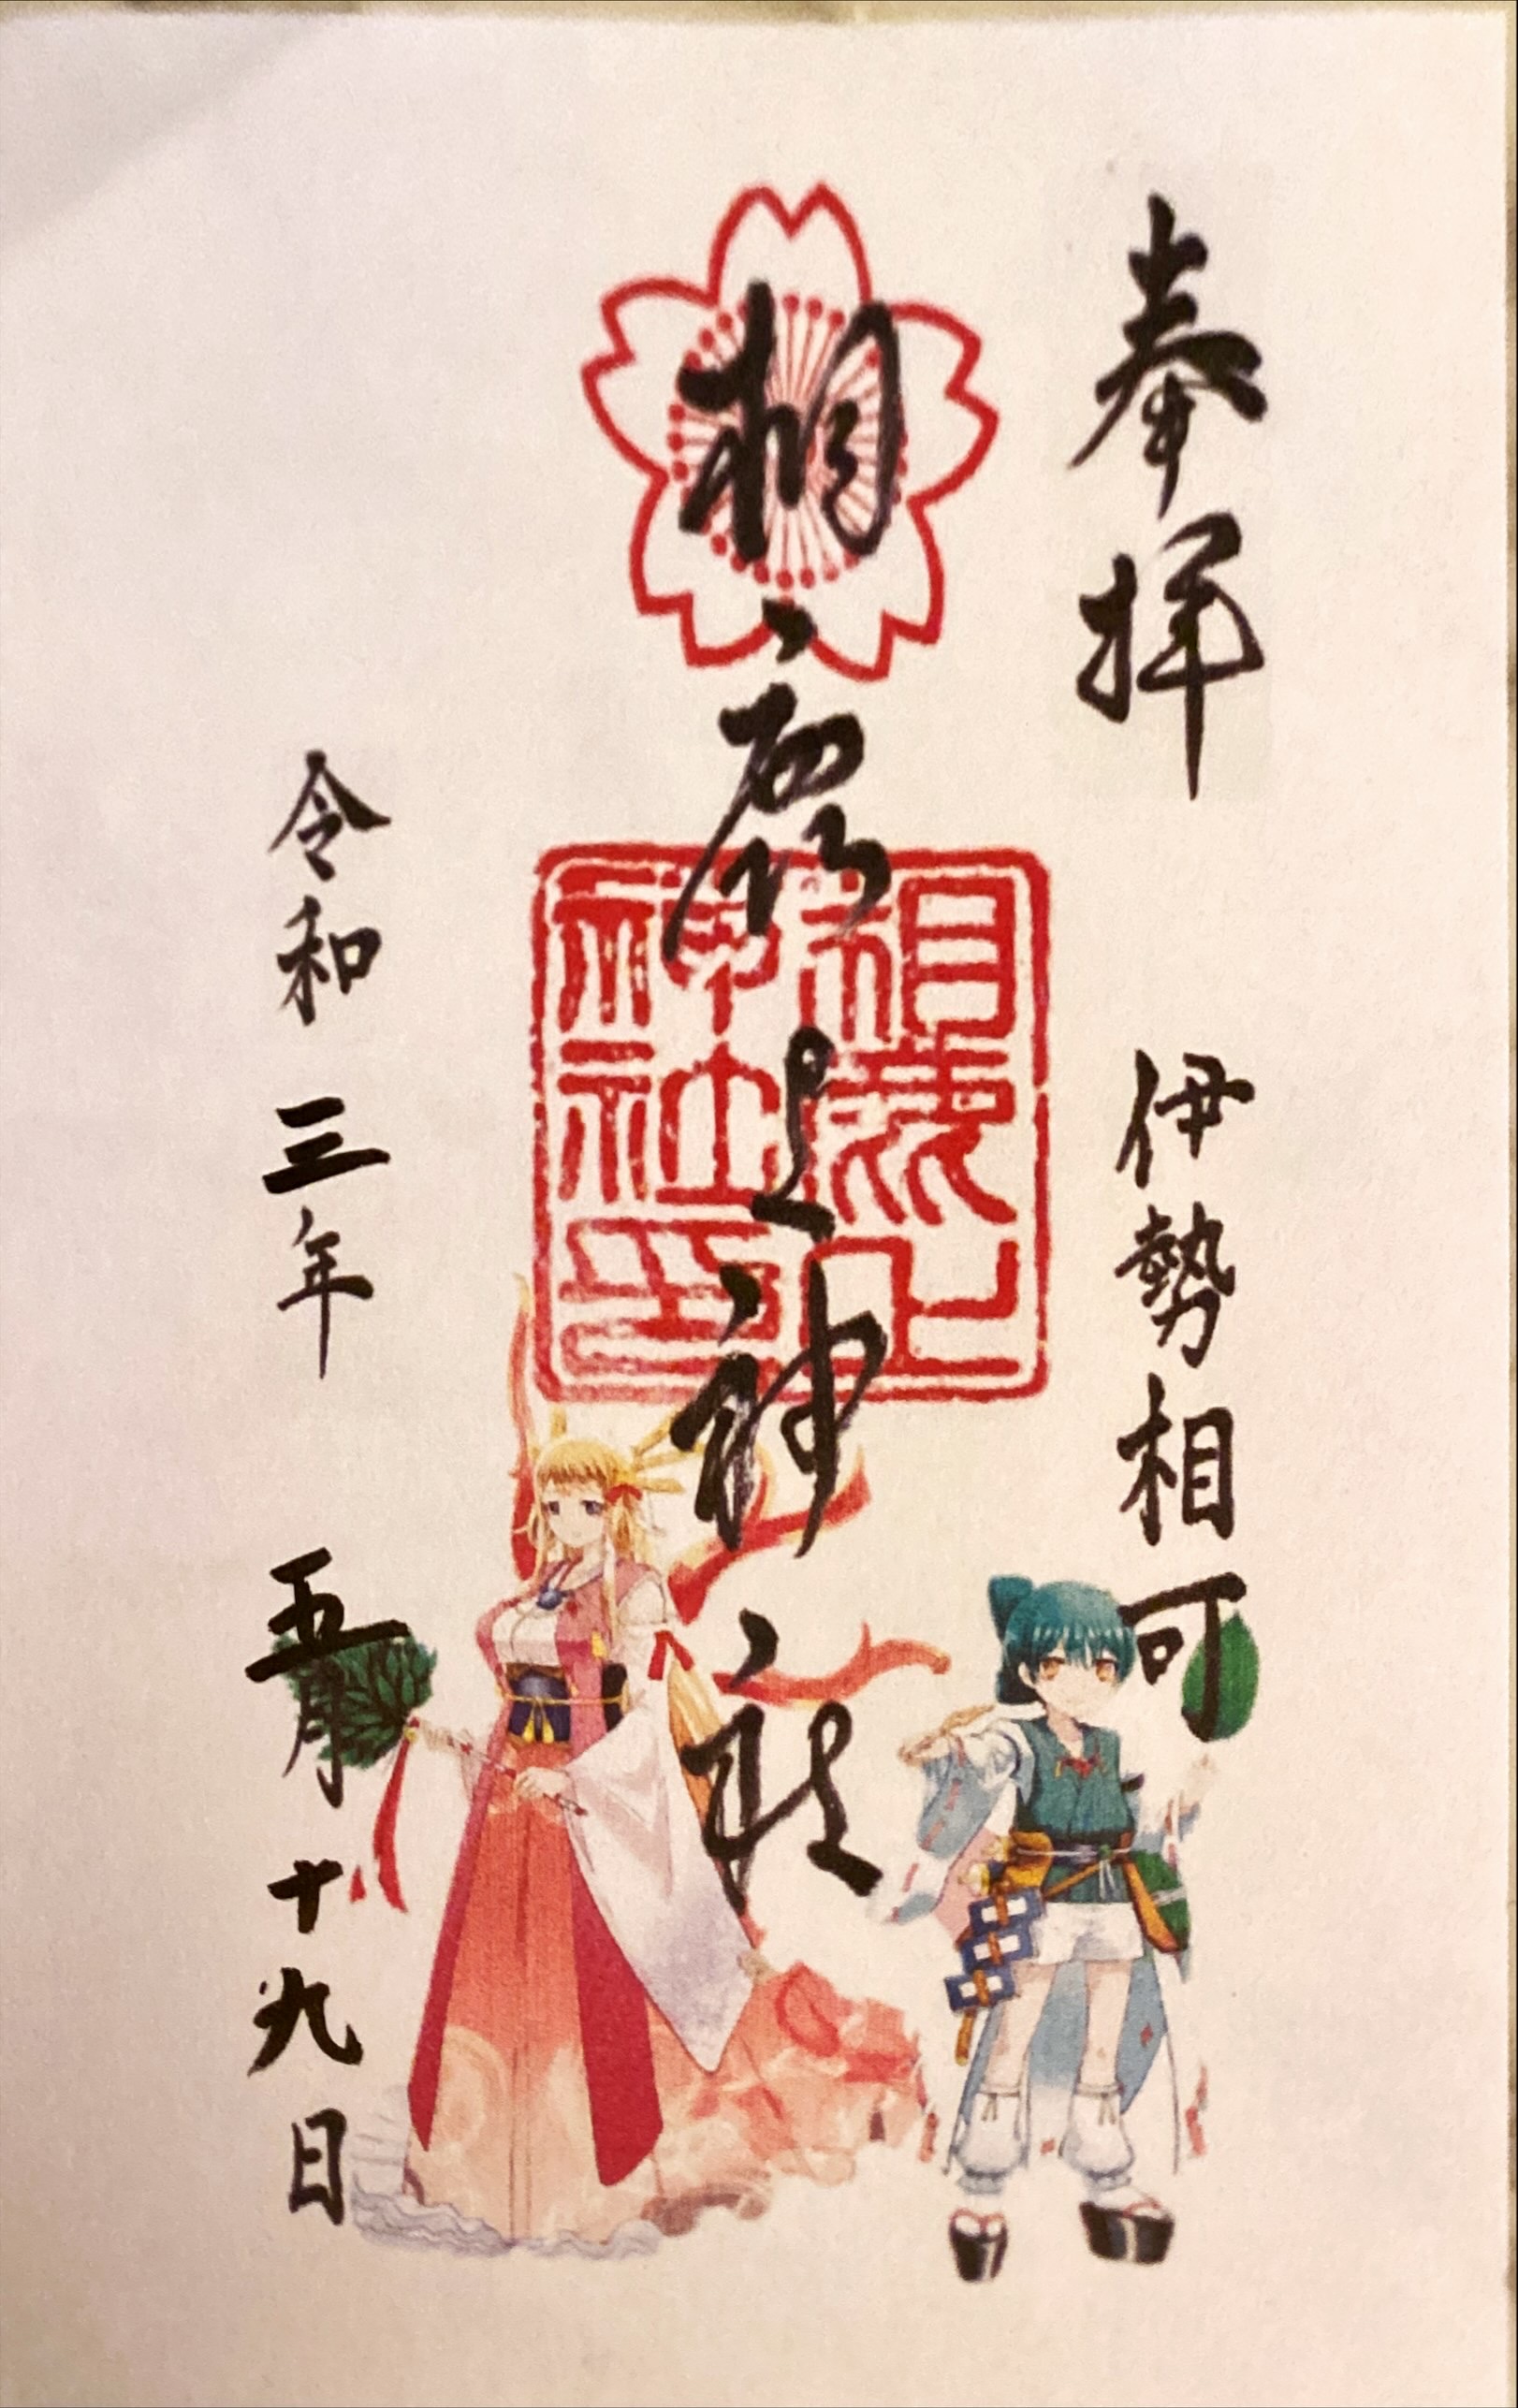 奉拝 伊勢相可
相鹿上神社
相鹿上神社印
令和三年五月十九日